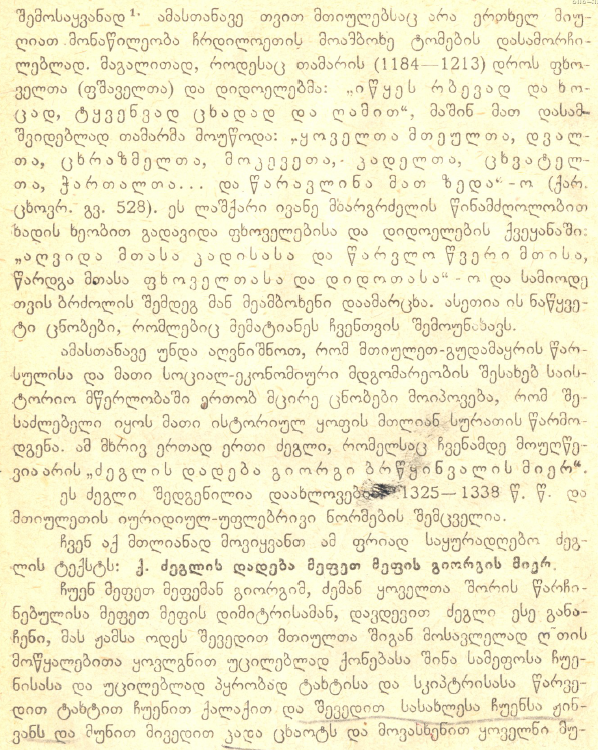 შემოსაყვანად¹. ამასთანავე თვით მთიულებსაც არა ერთხელ მიუ-
ღიათ მონაწილეობა ჩრდილოეთის მოამბოხე ტომების დასამორჩი-
ლებლად. მაგალითად, როდესაც თამარის (1184—1213) დროს ფხო-
ველთა (ფშაველთა) და დიდოელებმა: „იწყეს რბევად და ხო-
ცად, ტყვენვად ცხადად და ღამით“, მაშინ მათ დასამ-
შვიდებლად თამარმა მოუწოდა: „ყოველთა მთეულთა, დვალ-
თა, ცხრაზმელთა, მოკევეთა, კადელთა, ცხვატელ-
თა, ჭართალთა... და წარავლინა მათ ზედა“-ო (ქარ.
ცხოვრ. გვ. 528). ეს ლაშქარი ივანე მხარგრძელის წინამძღოლობით
ხადის ხეობით გადავიდა ფხოველებისა და დიდოელების ქვეყანაში:
„აღვიდა მთასა კადისასა და წარვლო წვერი მთისა,
წარდგა მთასა ფხოველთასა და დიდოთასა“-ო და სამიოდე
თვის ბრძოლის შემდეგ მან მეამბოხენი დაამარცხა. ასეთია ის ნაწყვე-
ტი ცნობები, რომლებიც მემატიანეს ჩვენთვის შემოუნახავს.
ამასთანავე უნდა აღვნიშნოთ, რომ მთიულეთ-გუდამაყრის წარ-
სულისა და მათი სოციალ-ეკონომიური მდგომარეობის შესახებ საის-
ტორიო მწერლობაში ერთობ მცირე ცნობები მოიპოვება, რომ შე-
საძლებელი იყოს მათი ისტორიულ ყოფის მთლიან სურათის წარმო-
დგენა. ამ მხრივ ერთად ერთი ძეგლი, რომელსაც ჩვენამდე მოუღწე-
ვია არის „ძეგლის დადება გიორგი ბრწყინვალის მიერ“.
ეს ძეგლი შედგენილია დაახლოვებით 1325—1338 წ. წ. და
მთიულეთის იურიდიულ-უფლებრივი ნორმების შემცველია.
ჩვენ აქ მთლიანად მოვიყვანთ ამ ფრიად საყურადღებო ძეგ-
ლის ტექსტს: ქ. ძეგლის დადება მეფეთ მეფის გიორგის მიერ.
ჩუენ მეფეთ მეფემან გიორგიმ, ძემან ყოველთა შორის წარჩი-
ნებულისა მეფეთ მეფის დიმიტრისამან, დავდევით ძეგლი ესე განა-
ჩენი, მას ჟამსა ოდეს შევედით მთიულთა შიგან მოსავლელად ღ~თის
მოწყალებითა ყოვლგნით უცილებლად ქონებასა შინა სამეფოსა ჩუე-
ნისასა და უცილებლად პყრობად ტახტისა და სკიპტრისასა წარვე-
დით ტახტით ჩუენით ქალაქით და შევედით სასახლესა ჩუენსა ჟინ-
ვანს და მუნით მივედით კადა ცხაოტს და მოვასხენით ყოველნი მუ-